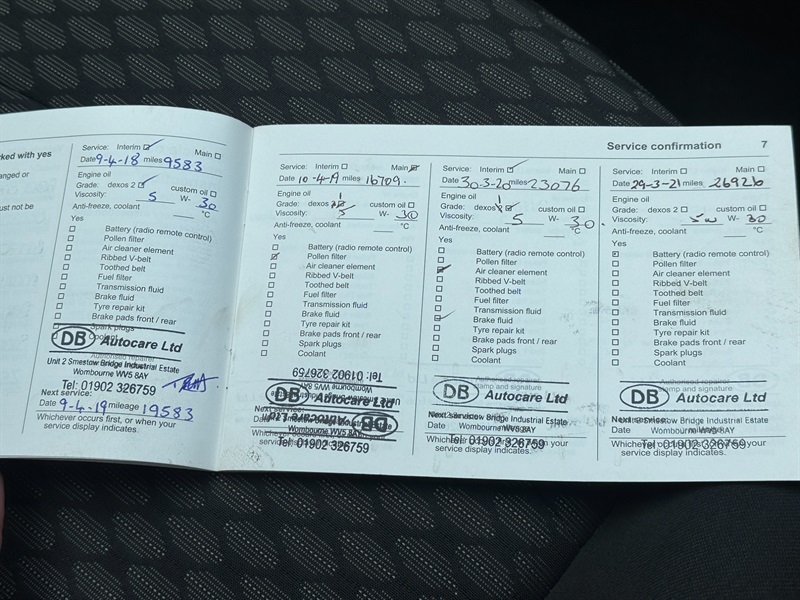 ked with yes
anged or
ust not be
Service: Interim Main
Date 9-4-18 miles 9583
Engine oil
Grade: dexos 2 custom oil
Viscosity: 5 W- 30
Anti-freeze, coolant °C
Yes
Battery (radio remote control)
Pollen filter
Air cleaner element
Ribbed V-belt
Toothed belt
Fuel filter
Transmission fluid
Brake fluid
Tyre repair kit
Brake pads front / rear
Spark plugs
Coolant
DB Autocare Ltd
Authorised repairer
Unit 2 Smestow Bridge Industrial Estate
Wombourne WV5 8AY
Tel: 01902 326759
Next service:
Date 9-4-19 mileage 19583
Whichever occurs first, or when your
service display indicates.
Service confirmation 7
Service: Interim Main
Date 10-4-19 miles 16709.
Engine oil
Grade: dexos custom oil
Viscosity: 5 W- 30
Anti-freeze, coolant °C
Yes
Battery (radio remote control)
Pollen filter
Air cleaner element
Ribbed V-belt
Toothed belt
Fuel filter
Transmission fluid
Brake fluid
Tyre repair kit
Brake pads front / rear
Spark plugs
Coolant
Tel: 01902 326759
Wombourne WV5 8AY
DB Autocare Ltd
Next service:
Wombourne WV5 8AY
Tel: 01902 326759
Service: Interim Main
Date 30-3-20 miles 23076
Engine oil
Grade: dexos custom oil
Viscosity: 5 W- 30.
Anti-freeze, coolant °C
Yes
Battery (radio remote control)
Pollen filter
Air cleaner element
Ribbed V-belt
Toothed belt
Fuel filter
Transmission fluid
Brake fluid
Tyre repair kit
Brake pads front / rear
Spark plugs
Coolant
Authorised repairer
stamp and signature
DB Autocare Ltd
Smestow Bridge Industrial Estate
Wombourne
Tel: 01902 326759
service display indicates.
Service: Interim Main
Date 29-3-21 miles 26926
Engine oil
Grade: dexos 2 custom oil
Viscosity: 5w W- 30
Anti-freeze, coolant °C
Yes
Battery (radio remote control)
Pollen filter
Air cleaner element
Ribbed V-belt
Toothed belt
Fuel filter
Transmission fluid
Brake fluid
Tyre repair kit
Brake pads front / rear
Spark plugs
Coolant
Authorised repairer
stamp and signature
DB Autocare Ltd
Smestow Bridge Industrial Estate
Wombourne WV5 8AY
Tel: 01902 326759
service display indicates.